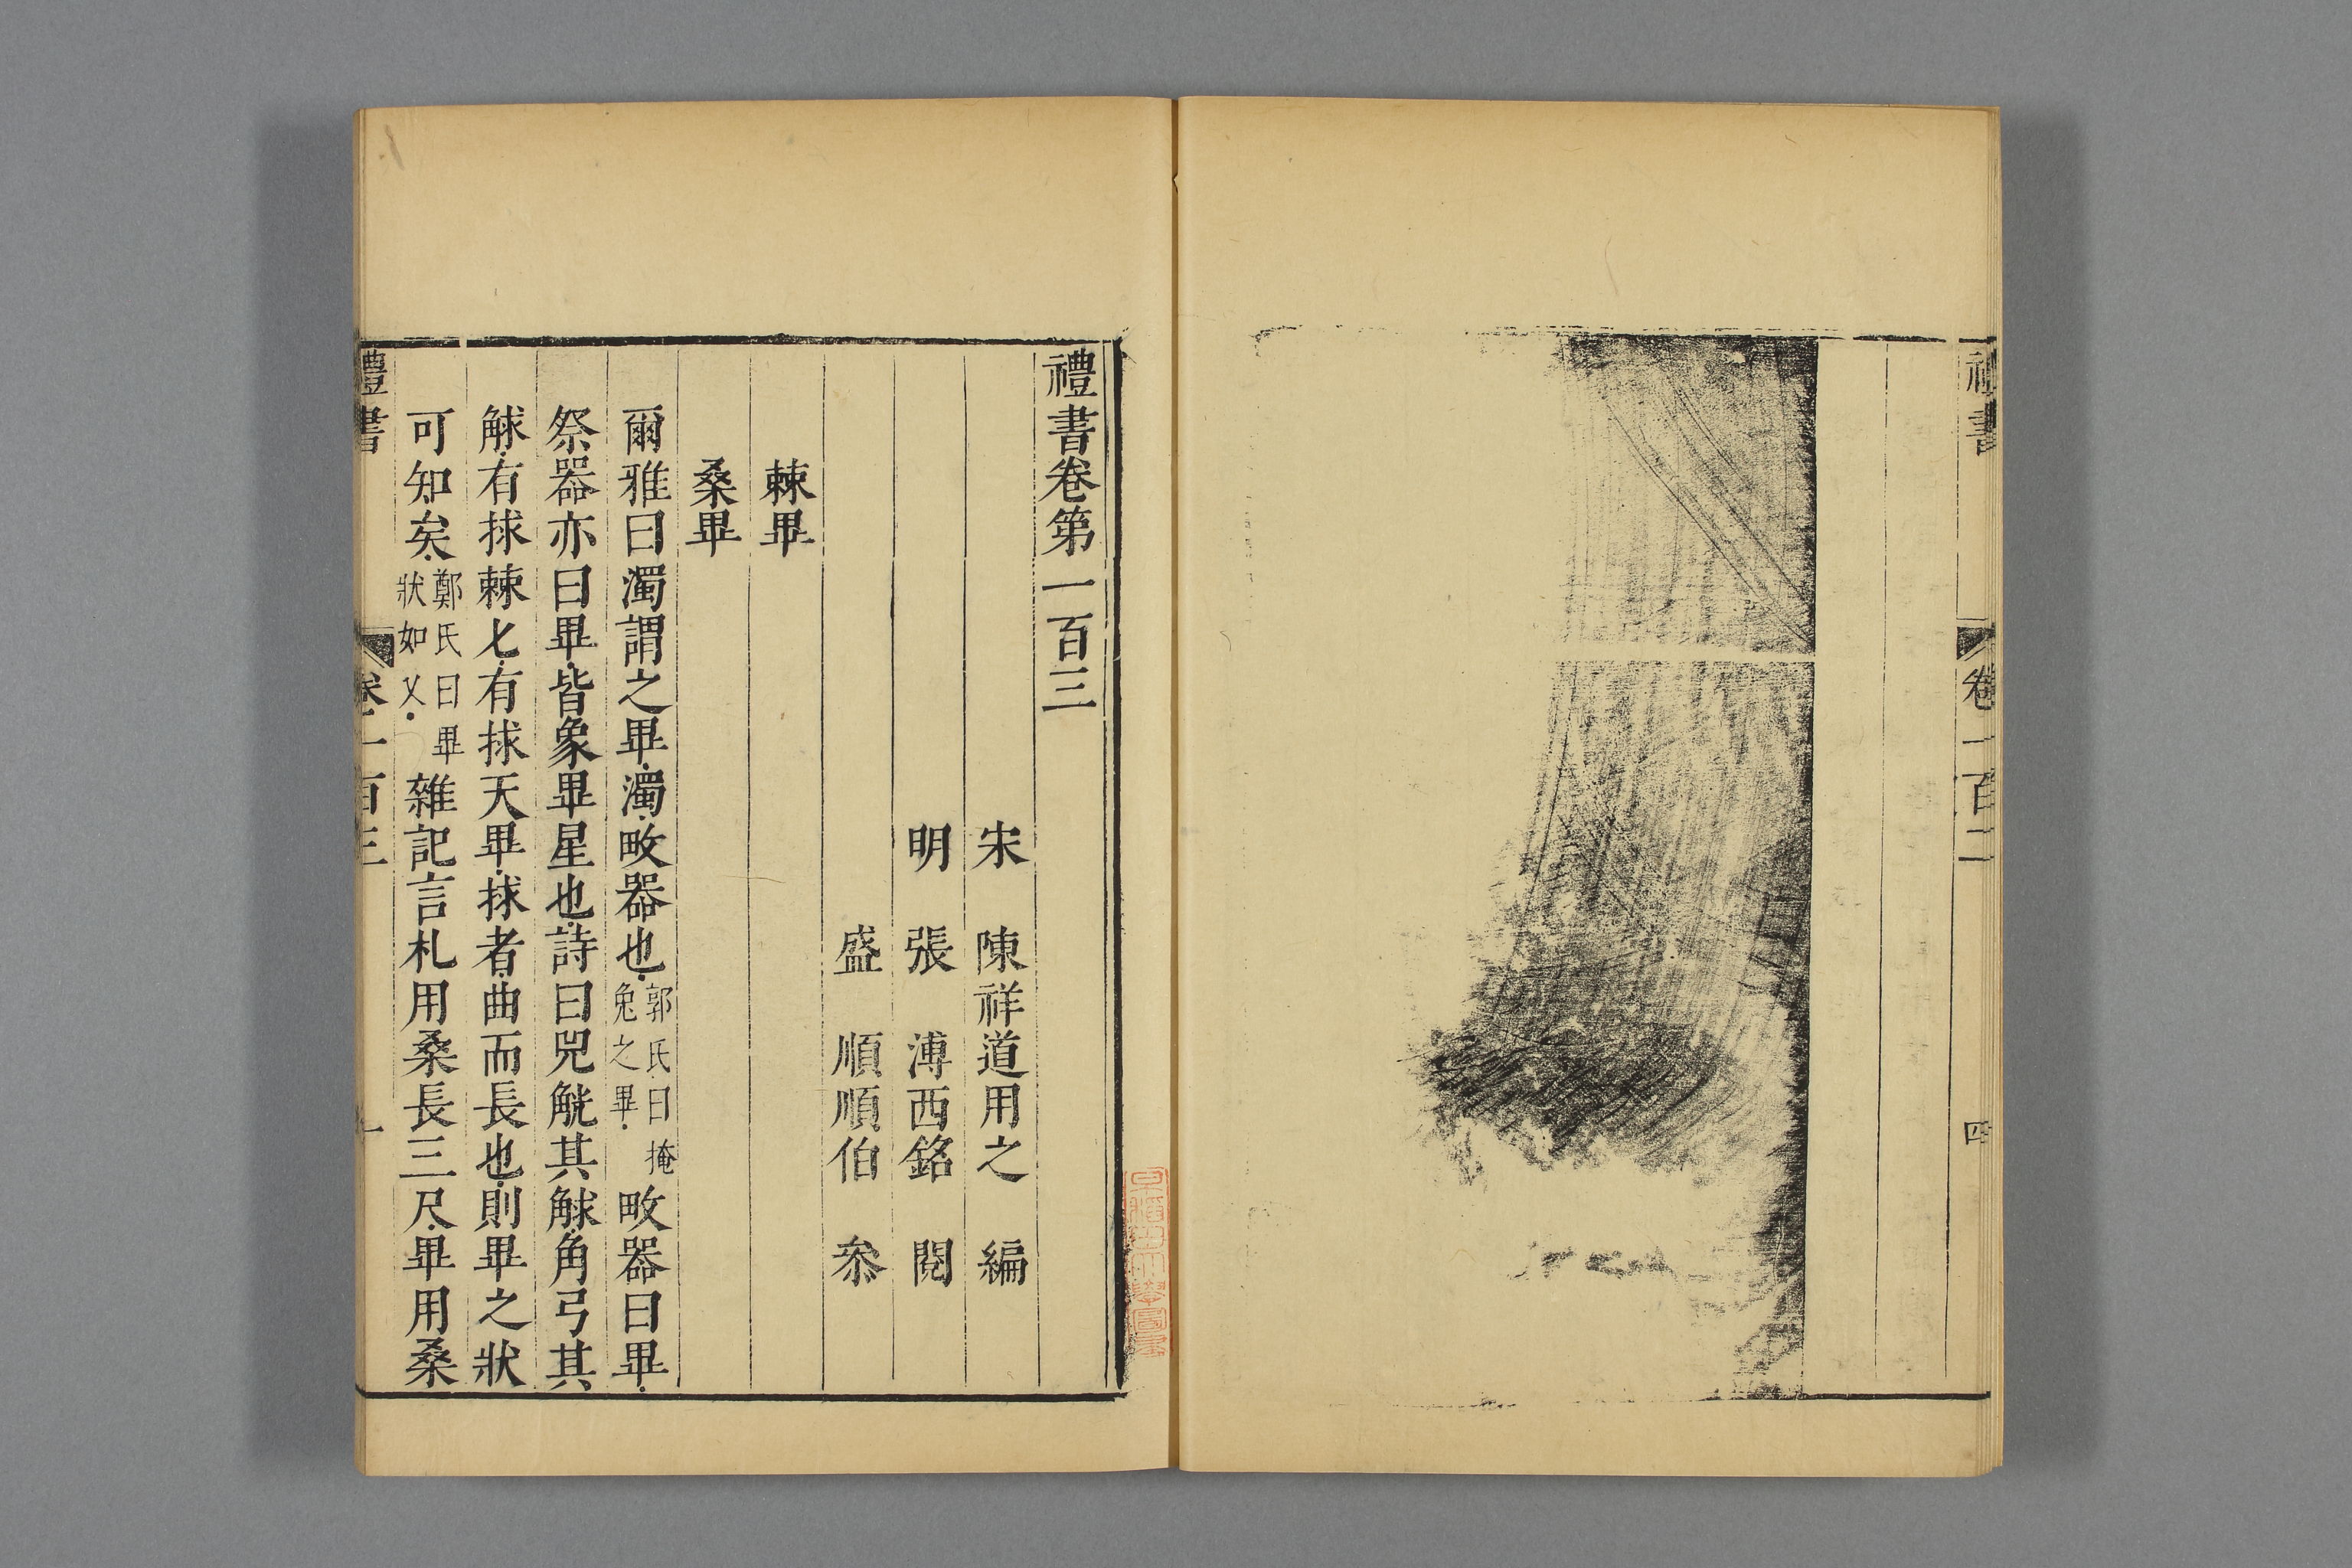 禮書
卷一百二
四
禮書卷第一百三
宋　陳祥道用之　編
明　張　溥西銘　閱
盛　順順伯　叅
棘畢
桑畢
爾雅曰濁謂之畢濁畋器也郭氏曰掩兔之畢畋器曰畢
祭器亦曰畢皆象畢星也詩曰兕觥其觩角弓其
觩有捄棘匕有捄天畢捄者曲而長也則畢之狀
可知矣鄭氏曰畢狀如叉雜記言札用桑長三尺畢用桑
禮書
卷一百三
一